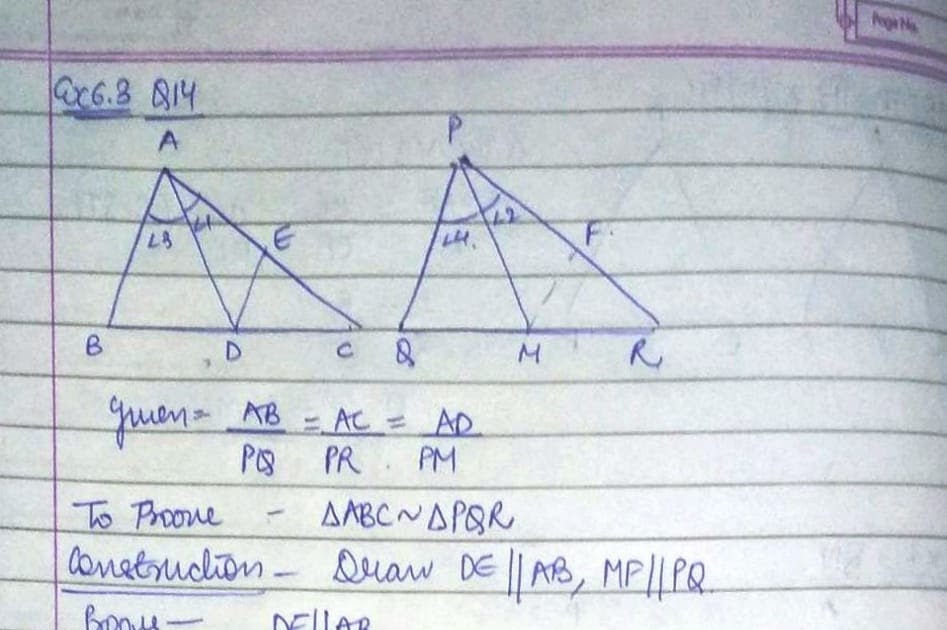 Page No.
Ex6.3 Q14
A P
∠3 ∠1 E ∠4. ∠2 F.
B D C Q M R
Given= AB/PQ = AC/PR = AD/PM
To Proove - ΔABC~ΔPQR
Construction - Draw DE||AB, MF||PQ.
Proove - DE||AB